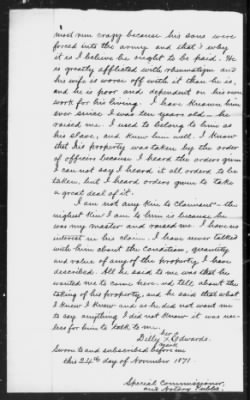 most run crazy because his sons were
forced into the army and that is why
it is I believe he ought to be paid. He
is greatly afflicted with rheumatism and
his wife is worse off with it than he is,
and he is poor and dependent on his own
work for his living. I have known him
ever since I was ten years old - he
raised me. I used to belong to him as
his slave, and knew him well. I know
that his property was taken by the order
of officers because I heard the orders given
I can not say I heard it all orderd to be
taken, but I heard orders given to take
a great deal of it.
I am not any kin to Claimant - the
nighest kin I am to him is because he
was my master and raised me. I have no
interest in his claim. I have never talked
with him about the condition, quantity
and value of any of the property I have
described. All he said to me was that he
wanted me to come here and tell about the
taking of his property, and he said that what
I knew I knew and as he did not want me
to say anything I did not know it was use-
less for him to talk to me.
his
Dilly X Edwards.
mark
Sworn to and subscribed before me
this 24th day of November 1871.
Special Commissioner
and Notary Public.